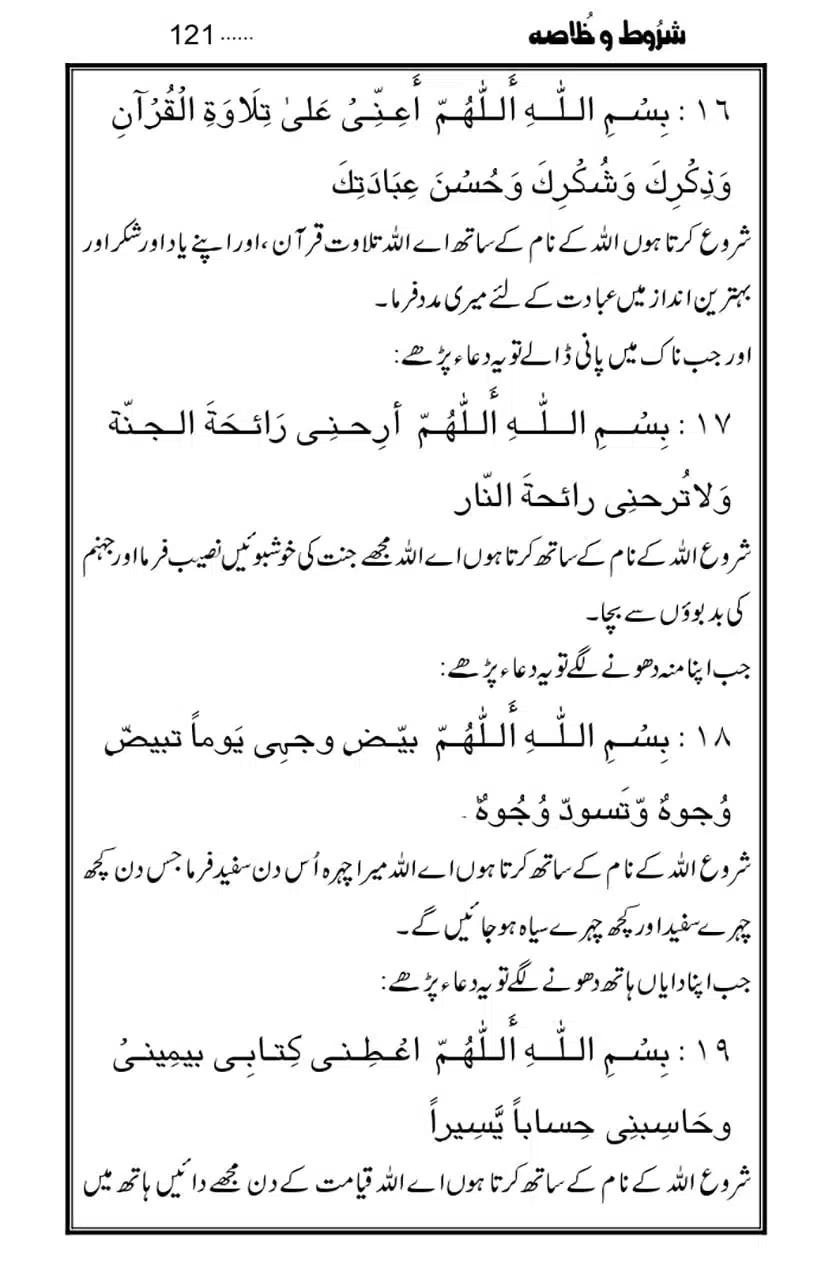 شرُوط و خُلاصه ...... 121
١٦ : بِسْمِ اللّٰهِ أَللّٰهُمّ أَعِنِّیْ عَلیٰ تِلَاوَةِ الْقُرْآنِ
وَذِكْرِكَ وَشُكْرِكَ وَحُسْنَ عِبَادَتِكَ
شروع کرتا ہوں اللہ کے نام کے ساتھ اے اللہ تلاوت قرآن ،اور اپنے یاد اور شکر اور
بہترین انداز میں عبادت کے لئے میری مدد فرما۔
اور جب ناک میں پانی ڈالے تو یہ دعاء پڑھے:
١٧ : بِسْمِ اللّٰهِ أَللّٰهُمّ أرِحنِی رَائحَةَ الجنّة
وَلاتُرحنِی رائحةَ النّار
شروع اللہ کے نام کے ساتھ کرتا ہوں اے اللہ مجھے جنت کی خوشبوئیں نصیب فرما اور جہنم
کی بدبوؤں سے بچا۔
جب اپنا منہ دھونے لگے تو یہ دعاء پڑھے:
١٨ : بِسْمِ اللّٰهِ أَللّٰهُمّ بیّضِ وجهِی یَوماً تبیضّ
وُجوهٌ وّتَسودّ وُجُوهٌ ۔
شروع اللہ کے نام کے ساتھ کرتا ہوں اے اللہ میرا چہرہ اُس دن سفید فرما جس دن کچھ
چہرے سفید اور کچھ چہرے سیاہ ہو جائیں گے۔
جب اپنا دایاں ہاتھ دھونے لگے تو یہ دعاء پڑھے:
١٩ : بِسْمِ اللّٰهِ أَللّٰهُمّ اعْطِنی كِتابِی بیمِینیْ
وحَاسِبنِی حِساباً یَّسِیراً
شروع اللہ کے نام کے ساتھ کرتا ہوں اے اللہ قیامت کے دن مجھے دائیں ہاتھ میں